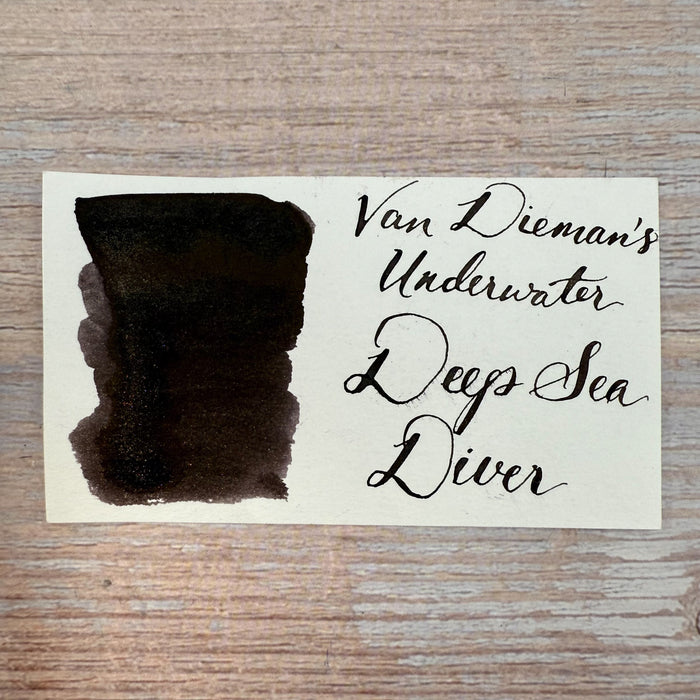 Van Dieman's
Underwater
Deep Sea
Diver